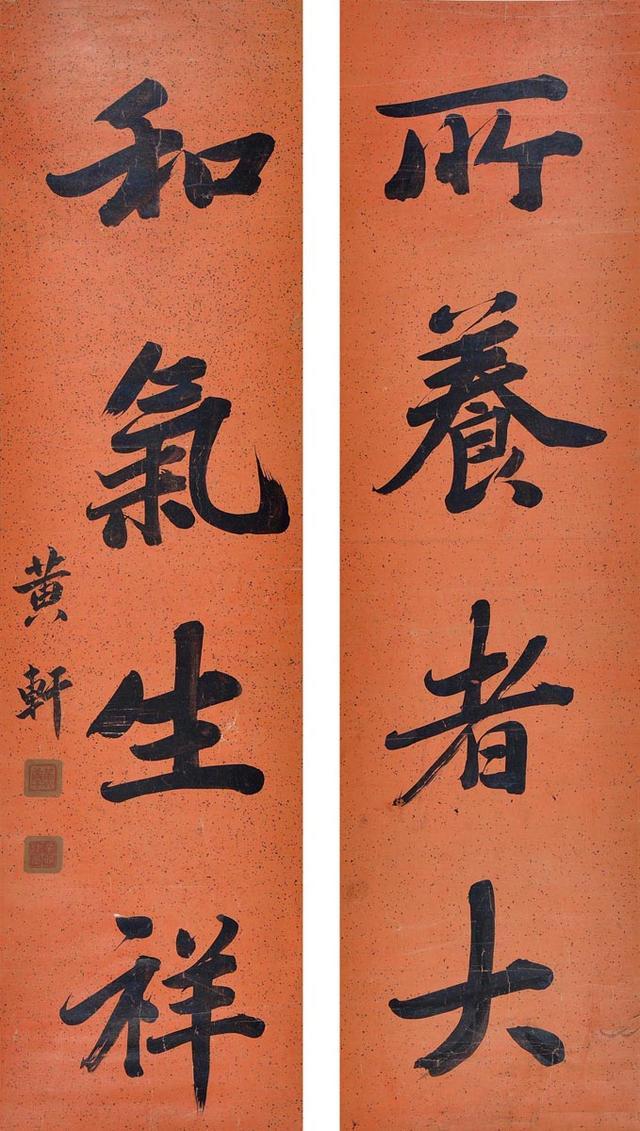 所養者大
和氣生祥
黃軒